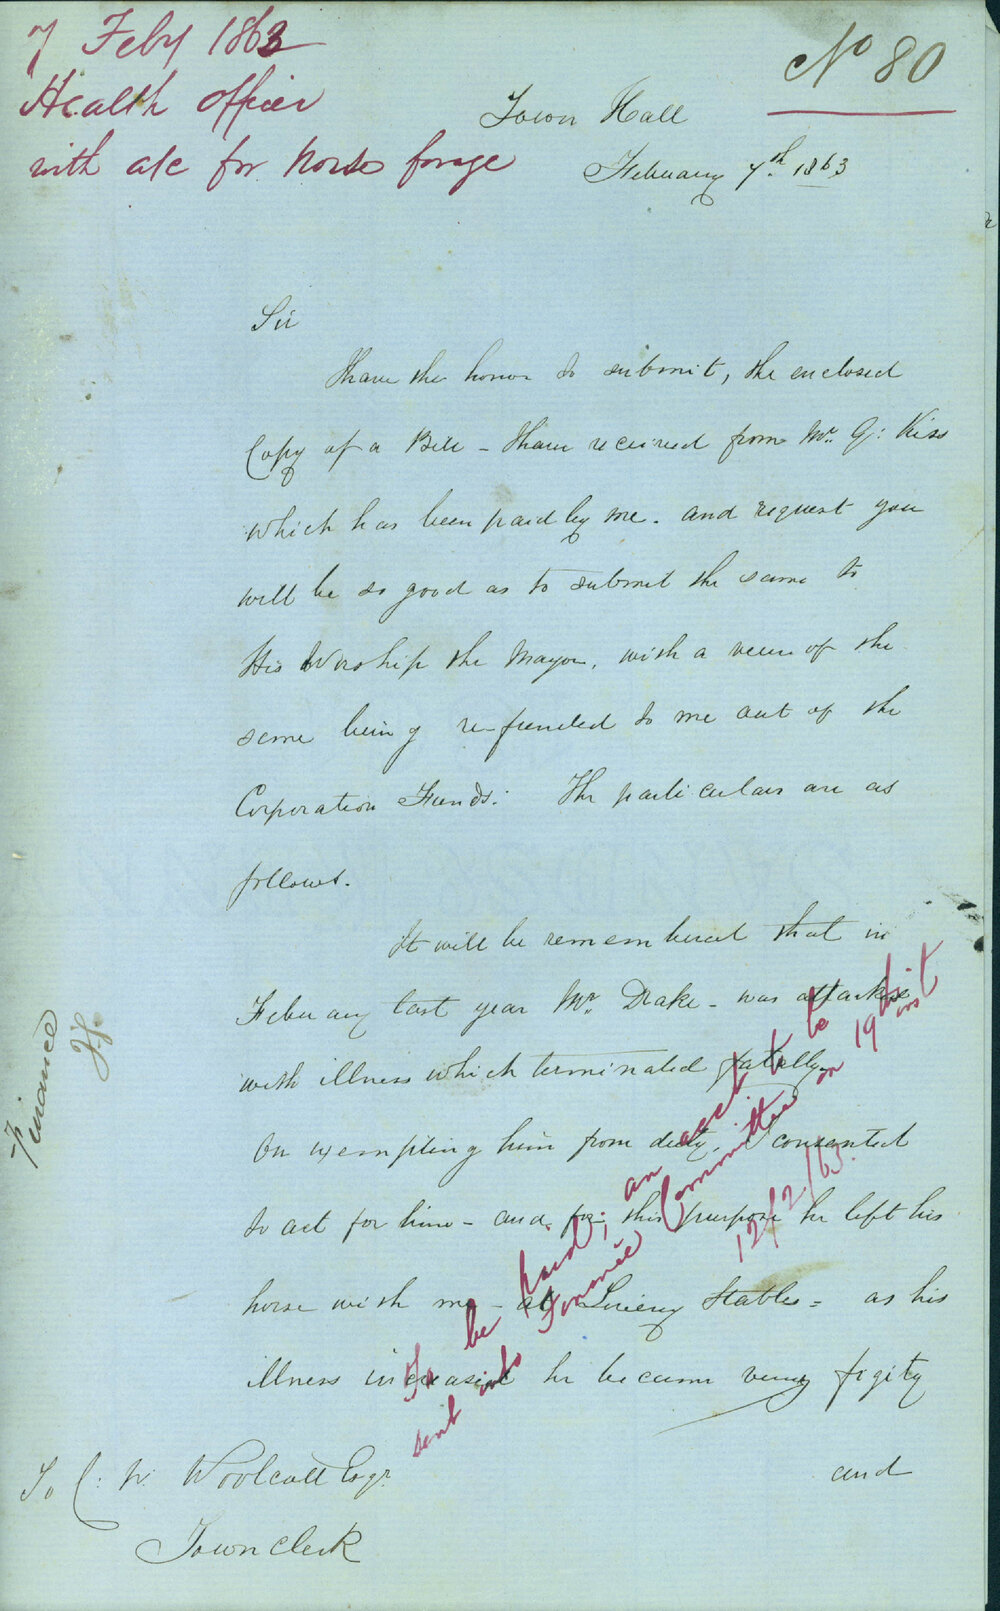 7 Feby 1863
Health officer
with a/c for Horse forage
No 80
Town Hall
February 7th 1863
Sir
I have the honor to submit, the enclosed
Copy of a Bill - I have received from Mr. G: Kiss
which has been paid by me. and request you
will be so good as to submit the same to
His Worship the Mayor, with a view of the
same being re-funded to me out of the
Corporation Funds: The particulars are as
follows.
It will be remembered that in
February last year Mr Drake - was attacked
with illness which terminated fatally.
On exempting him from duty, I consented
to act for him - and, for this purpose he left his
horse with me - at Livery Stables = as his
illness increased he became very figity
and
To C: W. Woolcott Esqr.
Town Clerk
Finance
To be paid; an acct to be
sent into Finance Committee on 19th inst
12/2/63.